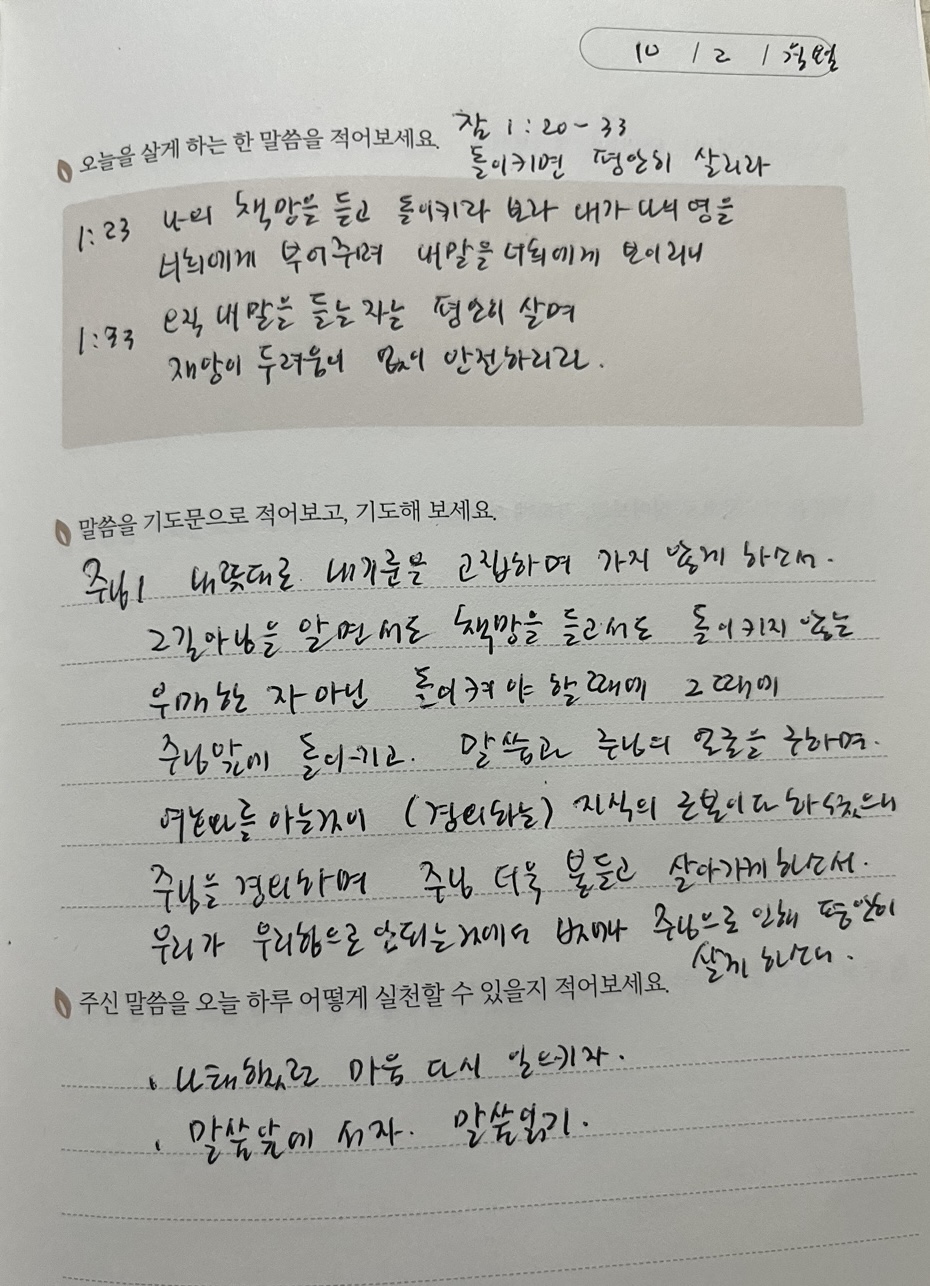 10 / 2 / 월요일
오늘을 살게 하는 한 말씀을 적어보세요.
잠 1:20-33
돌이키면 평안히 살리라
1:23 나의 책망을 듣고 돌이키라 보라 내가 나의 영을
너희에게 부어주며 내말을 너희에게 보이리니
1:33 오직 내 말을 듣는 자는 평안히 살며
재앙의 두려움이 없이 안전하리라.
말씀을 기도문으로 적어보고, 기도해 보세요.
주님! 내뜻대로 내기준을 고집하며 가지 않게 하소서.
그길아님을 알면서도 책망을 듣고서도 돌이키지 않는
우매한 자 아닌 돌이켜야 할때에 그때에
주님앞에 돌이키고. 말씀과 주님의 얼굴을 구하며.
여호와를 아는것이 (경외하는) 지식의 근본이다 하셨으니
주님을 경외하며 주님 더욱 붙들고 살아가게 하소서.
우리가 우리힘으로 안되는것에서 벗어나 주님으로 인해 평안히
살게 하소서.
주신 말씀을 오늘 하루 어떻게 실천할 수 있을지 적어보세요.
· 나태했던 마음 다시 일으키자.
· 말씀앞에 서자. 말씀읽기.